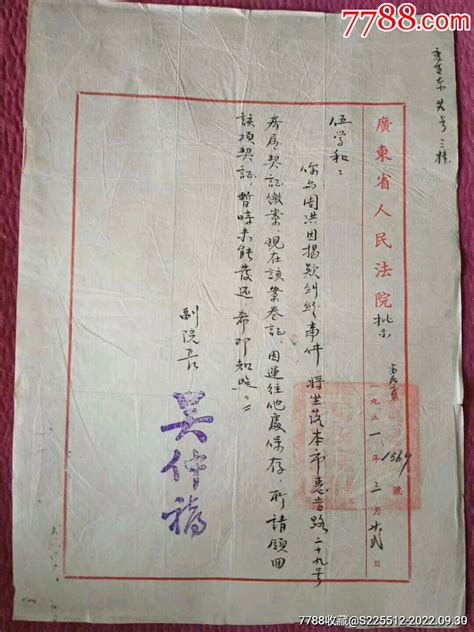 7788.com
廣東省人民法院批示
字第1569號
一九五一年三月廿弍日
伍学和：
你与周洪因揭欵糾紛事件，将坐落本市惠吉路二十九号
房屋契証繳案，現在該案卷証，因運往他處保存，所請領回
該項契証，暫時未能發还，希即知照。
副院長
吴仲禧
7788收藏@S225512-2022.09.30